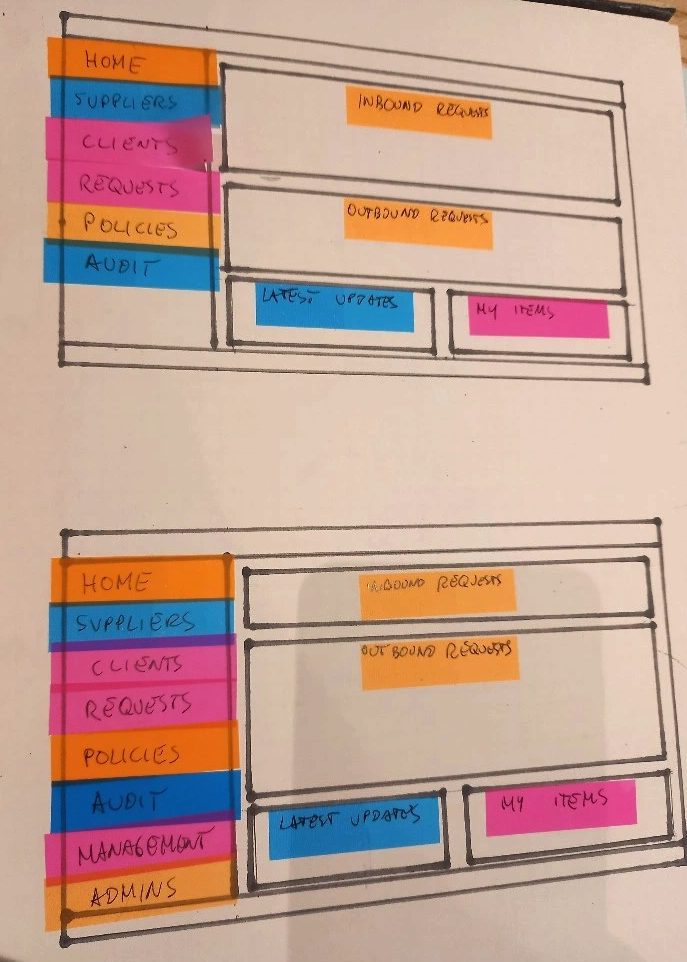 HOME
SUPPLIERS
CLIENTS
REQUESTS
POLICIES
AUDIT
INBOUND REQUESTS
OUTBOUND REQUESTS
LATEST UPDATES
MY ITEMS
HOME
SUPPLIERS
CLIENTS
REQUESTS
POLICIES
AUDIT
MANAGEMENT
ADMINS
INBOUND REQUESTS
OUTBOUND REQUESTS
LATEST UPDATES
MY ITEMS